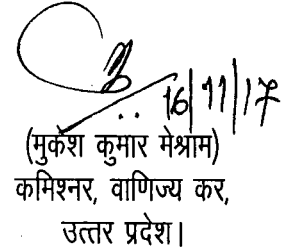 16/11/17
(मुकेश कुमार मेश्राम)
कमिश्नर, वाणिज्य कर,
उत्तर प्रदेश।